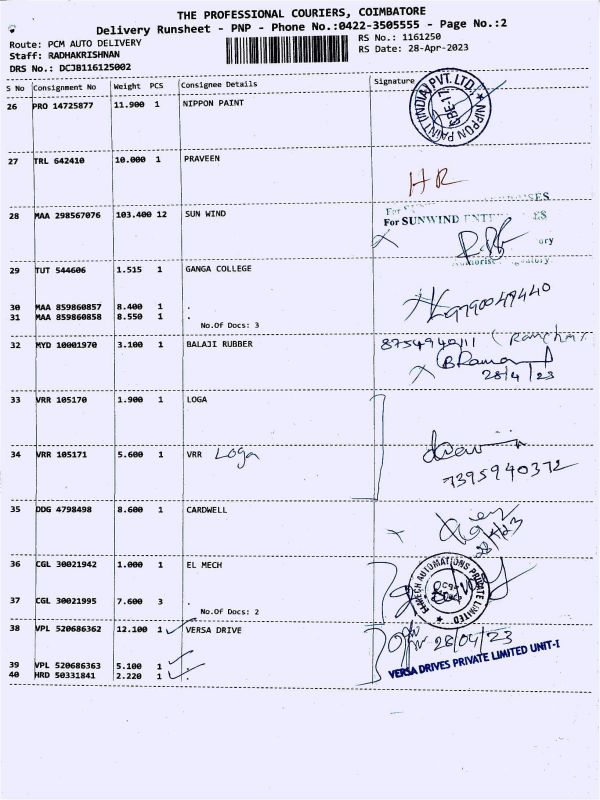 THE PROFESSIONAL COURIERS, COIMBATORE
Delivery Runsheet - PNP - Phone No.:0422-3505555 - Page No.:2
Route: PCM AUTO DELIVERY
RS No.: 1161250
Staff: RADHAKRISHNAN
RS Date: 28-Apr-2023
DRS No.: DCJB116125002
S No Consignment No Weight PCS Consignee Details Signature
26 PRO 14725877 11.900 1 NIPPON PAINT
NIPPON PAINT (INDIA) PVT. LTD.
27 TRL 642410 10.000 1 PRAVEEN
HR
28 MAA 298567076 103.400 12 SUN WIND
For SUNWIND
29 TUT 544606 1.515 1 GANGA COLLEGE
9790049440
30 MAA 859860857 8.400 1 .
31 MAA 859860858 8.550 1 .
No.Of Docs: 3
32 MYD 10001970 3.100 1 BALAJI RUBBER
28/4/23
33 VRR 105170 1.900 1 LOGA
34 VRR 105171 5.600 1 VRR Loga
7395940372
35 DDG 4798498 8.600 1 CARDWELL
28/4/23
36 CGL 30021942 1.000 1 EL MECH
AUTOMATIONS PRIVATE LIMITED
37 CGL 30021995 7.600 3 .
No.Of Docs: 2
38 VPL 520686362 12.100 1 VERSA DRIVE
28/04/23
39 VPL 520686363 5.100 1 .
40 HRD 50331841 2.220 1 .
VERSA DRIVES PRIVATE LIMITED UNIT-I